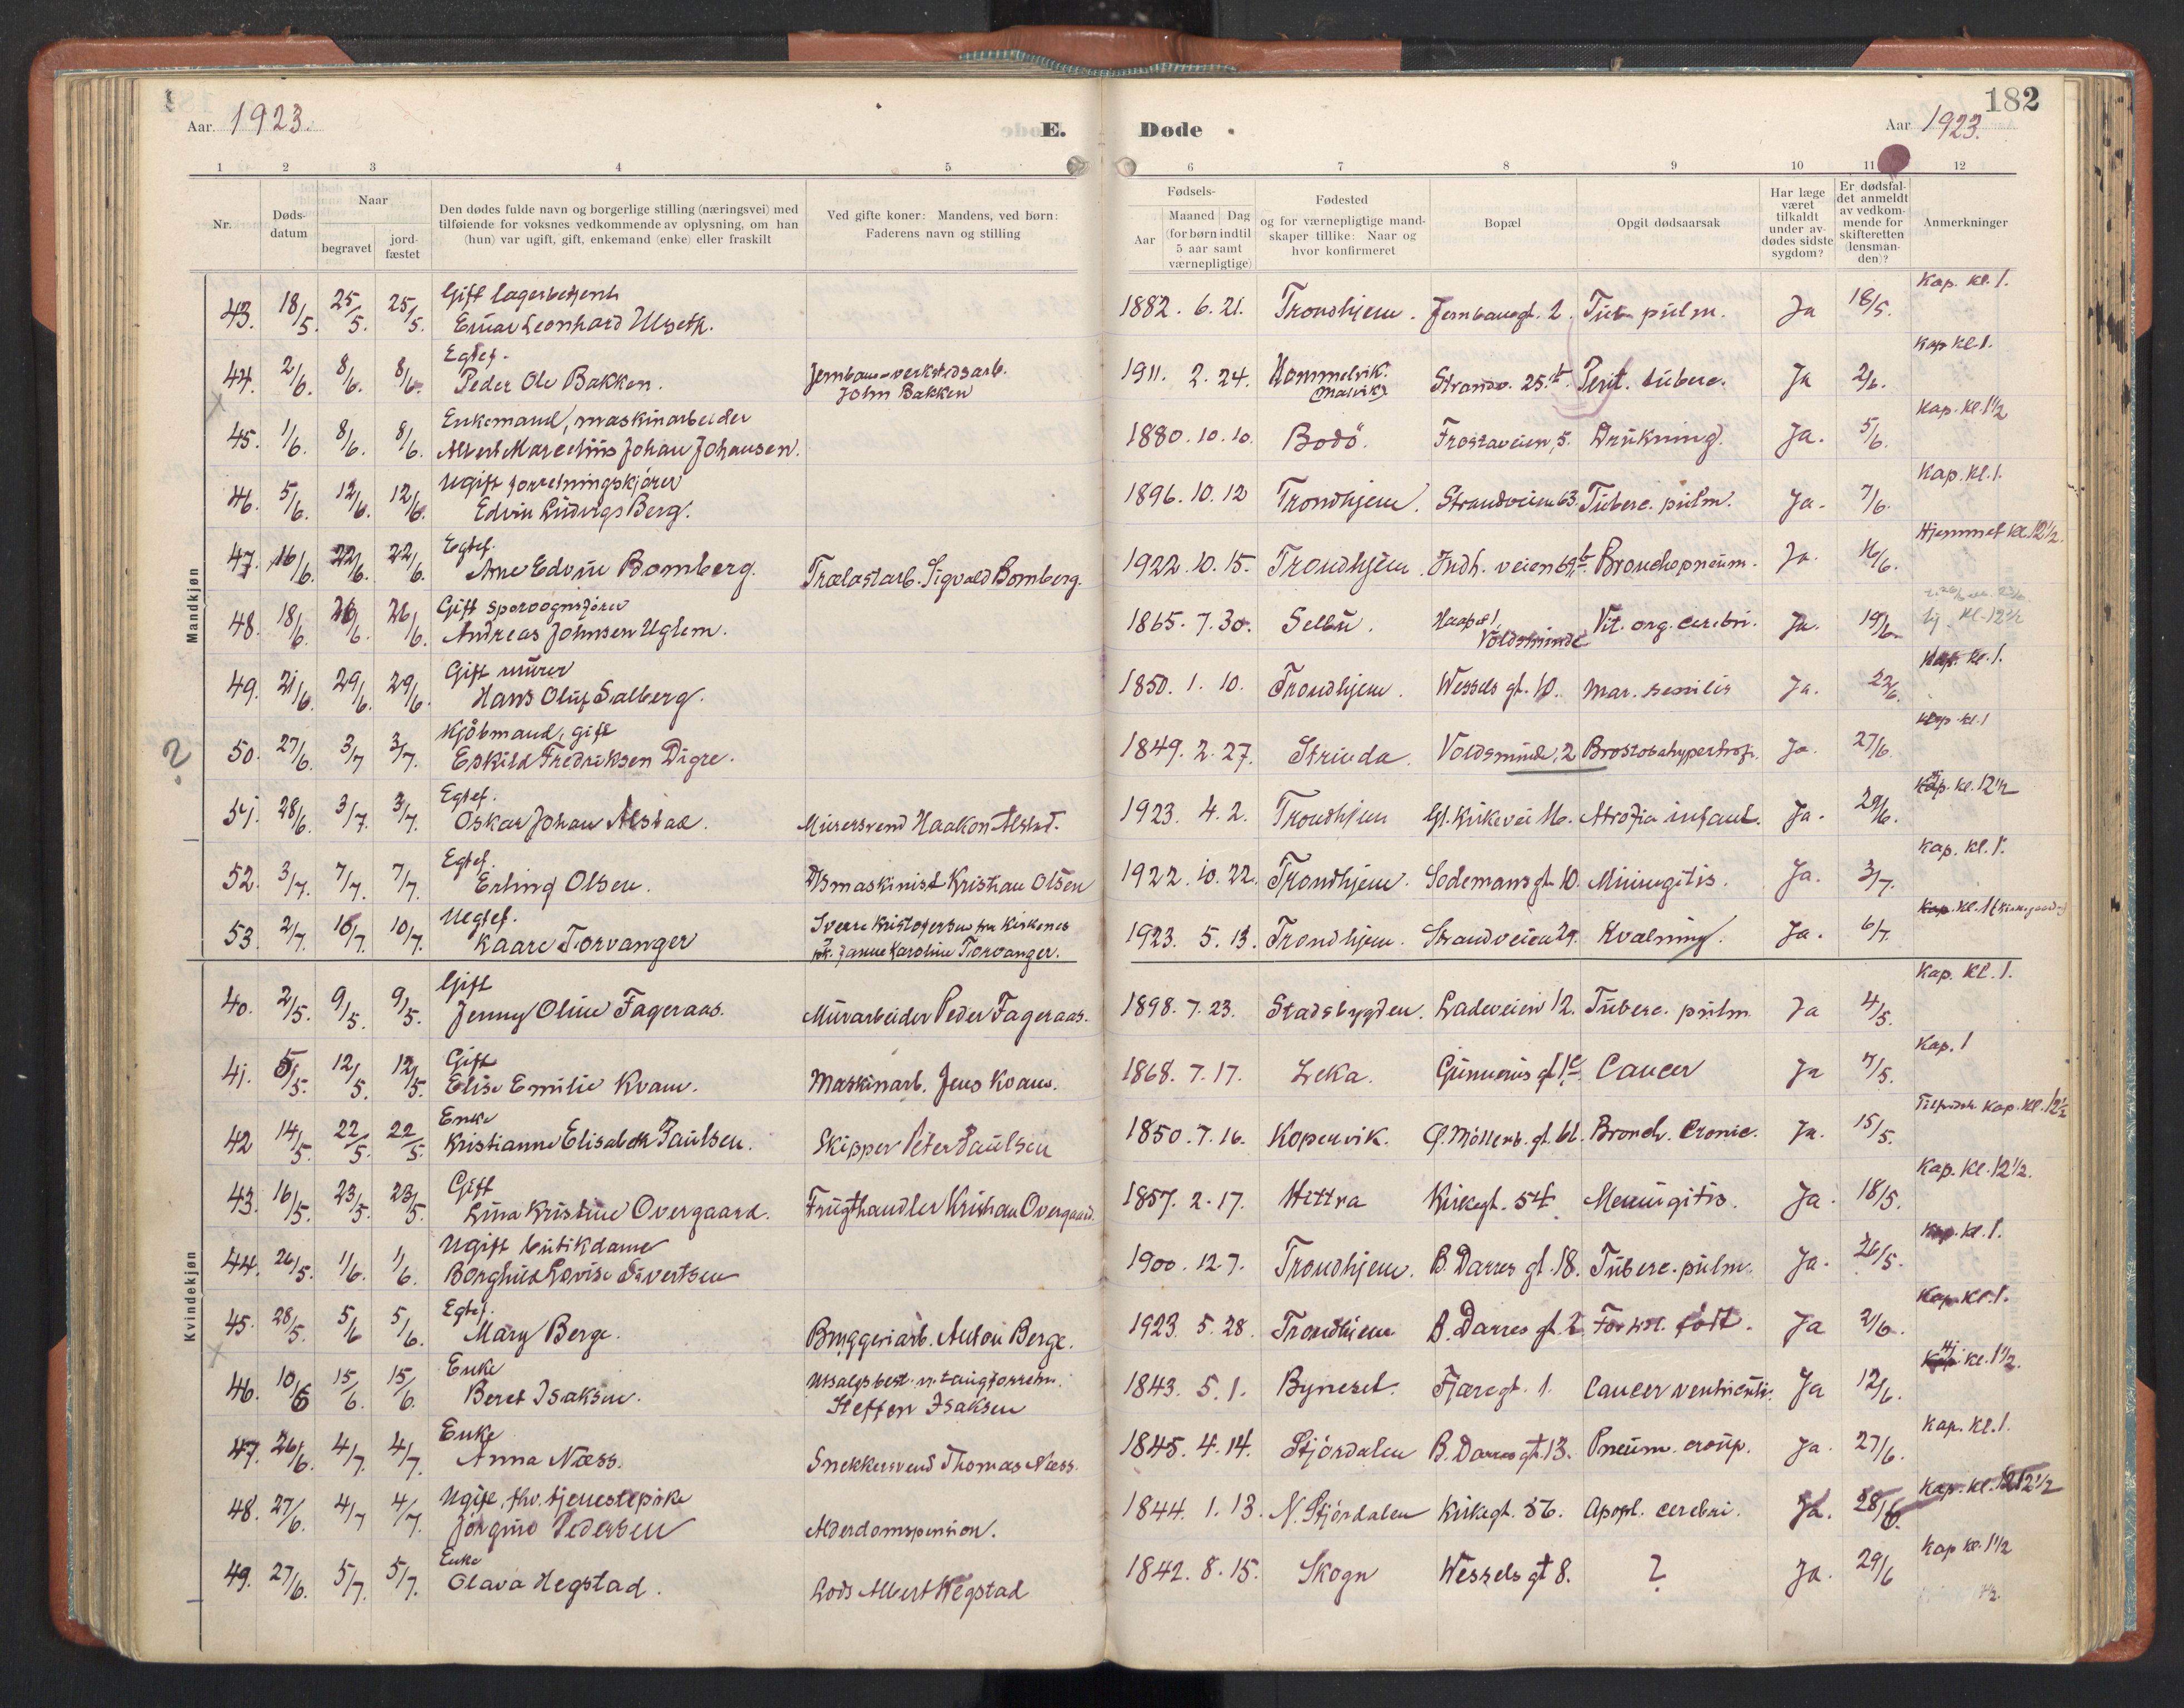 182
Aar. 1923.
E. Døde
Aar 1923.
1 2 3 4 5 6 7 8 9 10 11 12
Nr.
Døds-
datum
Naar
begravet
jord-
fæstet
Den dødes fulde navn og borgerlige stilling (næringsvei) med
tilføiende for voksnes vedkommende av oplysning, om han
(hun) var ugift, gift, enkemand (enke) eller fraskilt
Ved gifte koner: Mandens, ved børn:
Faderens navn og stilling
Fødsels-
Aar
Maaned Dag
(for børn indtil
5 aar samt
værnepligtige)
Fødested
og for værnepligtige mand-
skaper tillike: Naar og
hvor konfirmeret
Bopæl
Opgit dødsaarsak
Har læge
været
tilkaldt
under av-
dødes sidste
sygdom?
Er dødsfal-
det anmeldt
av vedkom-
mende for
skifteretten
(lensman-
den)?
Anmerkninger
Mandkjøn
Gift Kap. kl. 1.
43. 18/5. 25/5. 25/5. Einar Leonhard Ulseth. 1882. 6. 21. Trondhjem. Jernbanegt. 2. Tub. pulm. Ja 18/5.
Egtef. Jernbaneverkstedsarb. Kap kl. 1.
44. 2/6. 8/6. 8/6. Peder Ole Bakken. John Bakken 1911. 2. 24. Hommelvik. (Malvik) Strandv. 25 b. Perit. tuberc. Ja 2/6.
Enkemand, maskinarbeider Kap. kl. 1 1/2
45. 1/6. 8/6. 8/6. Albert Marcelius Johan Johansen. 1880. 10. 10. Bodö. Frostaveien, 5. Drukning. Ja. 5/6.
Ugift forretningskjører Kap. kl. 1.
46. 5/6. 12/6. 12/6. Edvin Ludvigs Berg. 1896. 10. 12 Trondhjem. Strandveien 63. Tuberc. pulm. Ja. 7/6.
Egtef. Hjemmet kl. 12 1/2.
47. 16/6. 22/6. 22/6. Arne Edvin Bomberg. Trælastarb. Sigvald Bomberg. 1922. 10. 15. Trondhjem. Indh. veien 69 b. Bronchopneum. Ja. 16/6.
Gift sporvognsfører
48. 18/6. 26/6. 26/6. Andreas Johnsen Uglem. 1865. 7. 30. Selbu. Voldsminde Vit. org. cerebri. Ja. 19/6. kl. 12 1/2
Gift murer Kap. kl. 1.
49. 21/6. 29/6. 29/6. Hans Oluf Salberg. 1850. 1. 10. Trondhjem. Wessels gt. 10. Mar. senilis Ja. 22/6.
Kjöbmand, gift Kap. kl. 1
?
50. 27/6. 3/7 3/7. Eskild Fredriksen Digre. 1849. 2. 27. Strinda. Voldsminde, 2 Prostatahypertrofi. Ja. 27/6
Egtef. kl. 12 1/2
51. 28/6. 3/7. 3/7. Oskar Johan Alstad. Murersvend Haakon Alstad. 1923. 4. 2. Trondhjem Gl. Kirkevei 16. Atrofia infant. Ja. 29/6.
Egtef. Kap. kl. 1.
52. 3/7. 7/7. 7/7. Erling Olsen. D/S maskinist Kristian Olsen 1922. 10. 22. Trondhjem. Sodemans gt. 10. Miningitis. Ja. 3/7.
Uegtef. Sverre Kristofersen fra Kirkenes
53. 2/7. 10/7. 10/7. Kaare Torvanger Janne Karoline Torvanger. 1923. 5. 13. Trondhjem. Strandveien 29. Kvælning. Ja. 6/7.
Kvindekjøn
Gift Kap. kl. 1.
40. 2/5. 9/5. 9/5. Jenny Oline Fageraas. Murarbeider Peder Fageraas. 1898. 7. 23. Stadsbygden. Ladeveien 12. Tuberc. pulm. Ja 4/5.
Gift Kap. 1
41. 5/5. 12/5. 12/5. Elise Emilie Kvam. Maskinarb. Jens Kvam. 1868. 7. 17. Leka. Gunnerus gt 1 c. Cancer Ja 7/5.
Enke Kap. kl. 12 1/2
42 14/5. 22/5. 22/5. Kristianne Elisabeth Paulsen. Skipper Peter Paulsen 1850. 7. 16. Kopervik. Möllenb. gt. 61. Bronch. Cronic. Ja. 15/5.
Gift Kap. kl. 12 1/2.
43. 16/5. 23/5. 23/5. Lina Kristine Overgaard. Frugthandler Kristian Overgaard. 1857. 2. 17. Hittra Kirkegt. 54. Meningitis. Ja. 18/5.
Ugift butikdame Kap. kl. 1.
44. 26/5. 1/6. 1/6. Borghild Lovise Sivertsen 1900. 12 7. Trondhjem. B. Darres gt. 18. Tuberc. pulm. Ja. 26/5.
Egtef. Kap kl. 1.
45. 28/5. 5/6 5/6. Mary Berge. Bryggeriarb. Anton Berge. 1923. 5. 28. Trondhjem B. Darres gt. 2 født. Ja 2/6.
Enke Utsalgsbest. kl. 1 1/2.
46. 10/6 15/6. 15/6. Beret Isaksen. Steffen Isaksen 1843. 5. 1. Byneset. Fjæregt. 1. Cancer ventriculi. Ja 12/6.
Enke Kap. kl. 1.
47. 26/6. 4/7. 4/7. Anna Næss. Snekkersvend Thomas Næss. 1845. 4. 14. Stjördalen B. Darres gt. 13. Pneum. croup. Ja. 27/6.
Ugift, fhv. tjenestepike Kap. kl. 12 1/2
48. 27/6. 4/7 4/7. Jörgine Pedersen Alderdomspension. 1844. 1. 13. N. Stjördalen Kirkegt. 36. Apopl. cerebri. Ja. 28/6.
Enke Kap kl. 1 1/2
49. 27/6. 5/7. 5/7. Olava Hegstad. Lods Albert Hegstad 1842. 8. 15. Skogn Wessels gt 8. ? Ja. 29/6